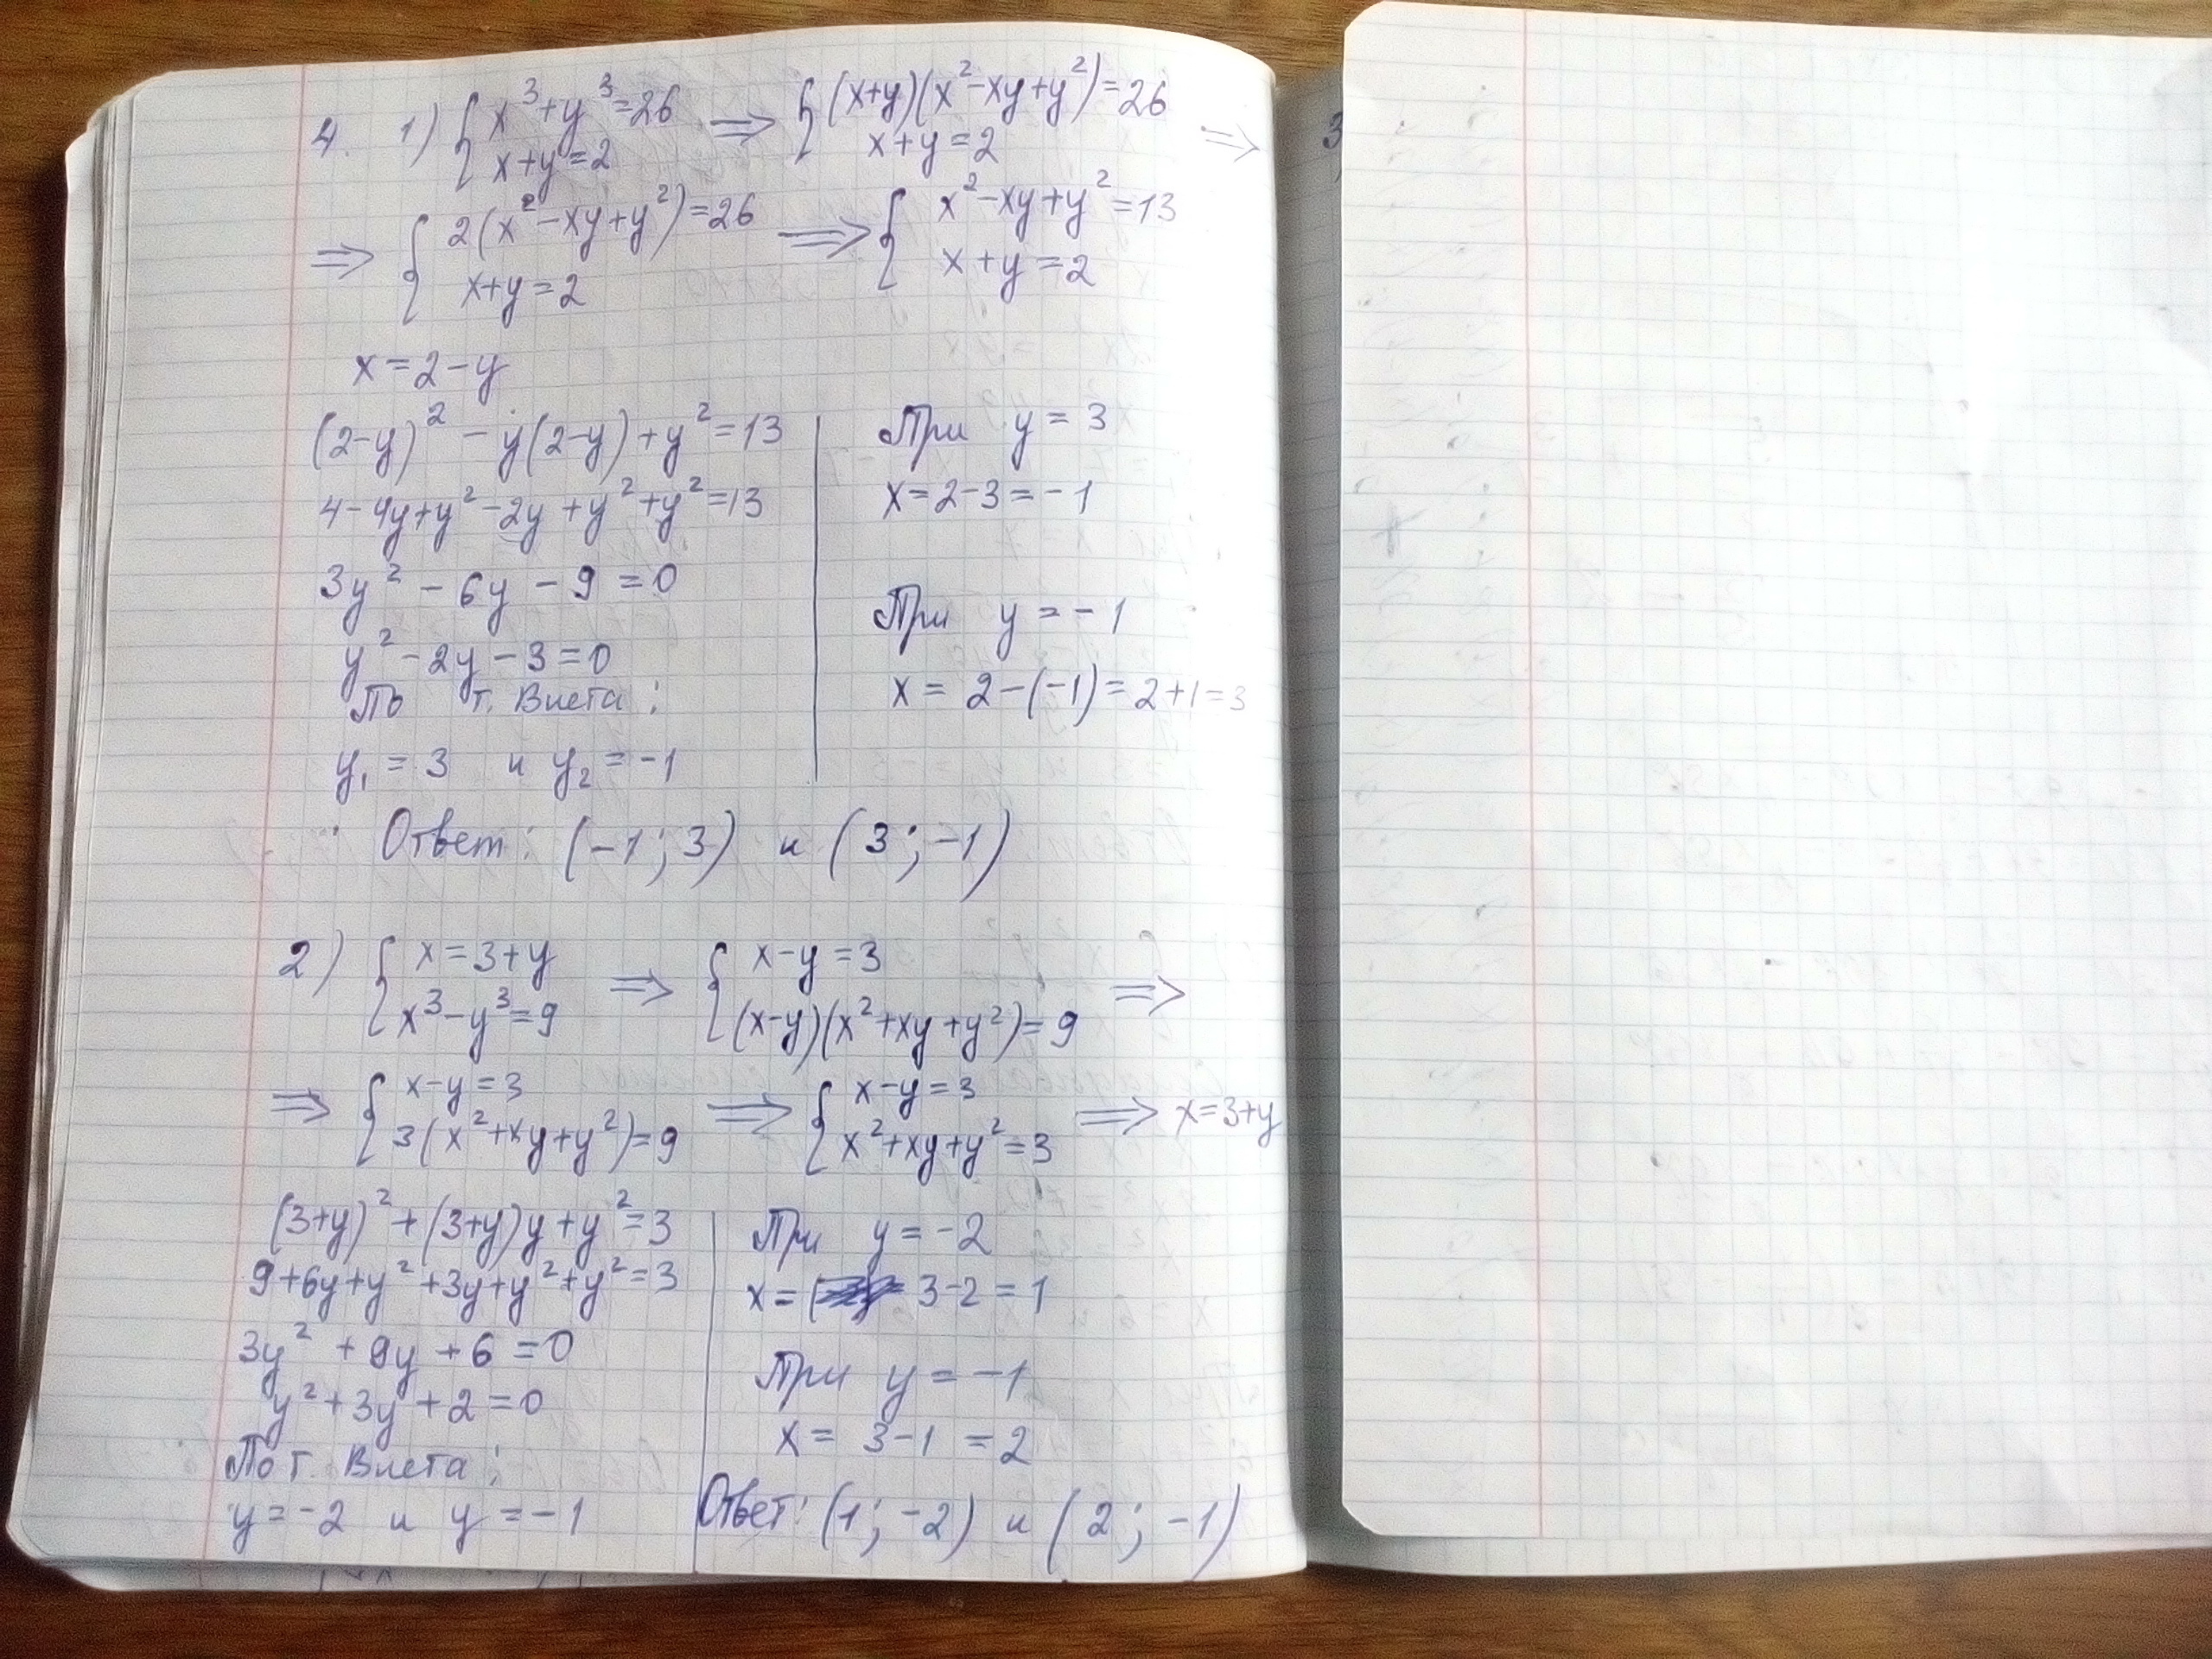 4. 1) { x³+y³=26 ⇒ { (x+y)(x²-xy+y²)=26 ⇒
x+y=2 x+y=2
⇒ { 2(x²-xy+y²)=26 ⇒ { x²-xy+y²=13
x+y=2 x+y=2
x=2-y
(2-y)²-y(2-y)+y²=13
4-4y+y²-2y+y²+y²=13
3y²-6y-9=0
y²-2y-3=0
По т. Виета:
y₁=3 и y₂=-1
При y=3
x=2-3=-1
При y=-1
x=2-(-1)=2+1=3
Ответ: (-1; 3) и (3; -1)
2) { x=3+y ⇒ { x-y=3 ⇒
x³-y³=9 (x-y)(x²+xy+y²)=9
⇒ { x-y=3 ⇒ { x-y=3 ⇒ x=3+y
3(x²+xy+y²)=9 x²+xy+y²=3
(3+y)²+(3+y)y+y²=3
9+6y+y²+3y+y²+y²=3
3y²+9y+6=0
y²+3y+2=0
По т. Виета:
y=-2 и y=-1
При y=-2
x= 3-2=1
При y=-1
x=3-1=2
Ответ: (1; -2) и (2; -1)
3